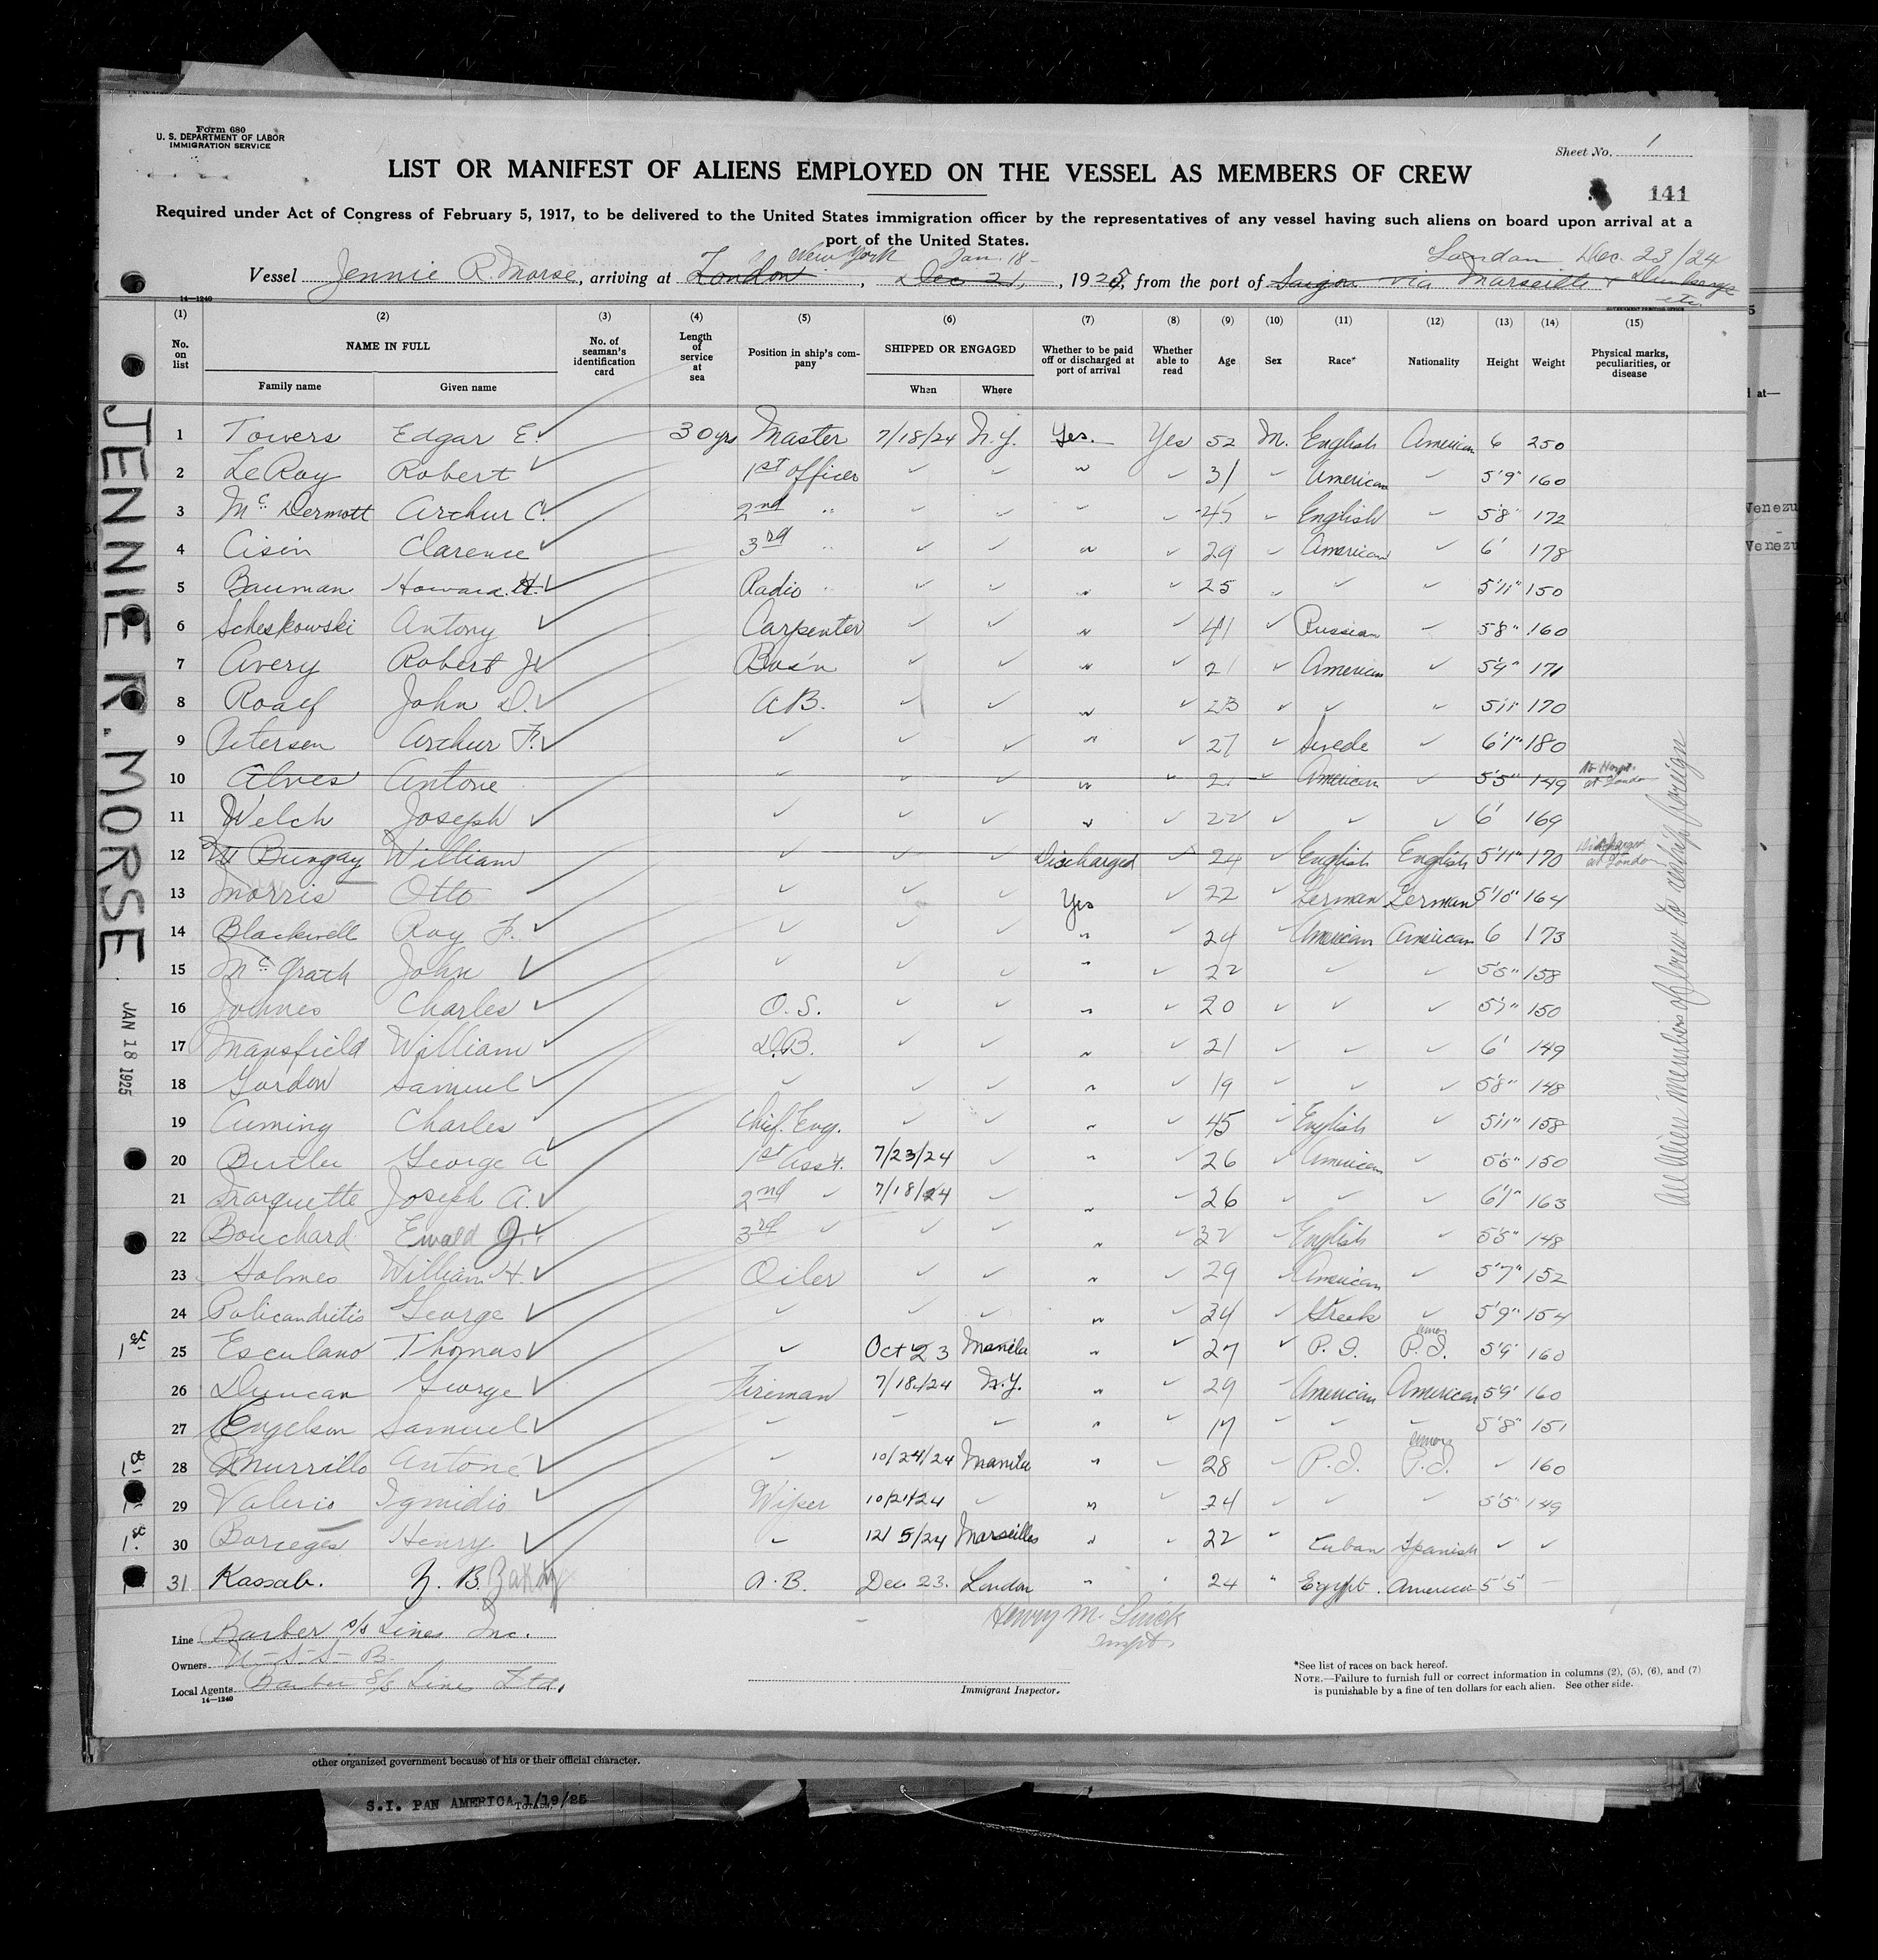 Form 680
U. S. DEPARTMENT OF LABOR
IMMIGRATION SERVICE
Sheet No. 1
LIST OR MANIFEST OF ALIENS EMPLOYED ON THE VESSEL AS MEMBERS OF CREW
141
Required under Act of Congress of February 5, 1917, to be delivered to the United States immigration officer by the representatives of any vessel having such aliens on board upon arrival at a
port of the United States.
New York Jan. 18- London Dec. 23/24
Vessel Jennie R. Morse, arriving at London, Dec 21, 1925, from the port of Saigon via Marseille
etc.
14-1240
(1) (2) (3) (4) (5) (6) (7) (8) (9) (10) (11) (12) (13) (14) (15)
No. on list NAME IN FULL No. of seaman's identification card Length of service at sea Position in ship's company SHIPPED OR ENGAGED Whether to be paid off or discharged at port of arrival Whether able to read Age Sex Race* Nationality Height Weight Physical marks, peculiarities, or disease
Family name Given name When Where
1 Towers Edgar E. 30 yrs Master 7/18/24 N.Y. Yes. Yes 52 M. English American 6 250
2 LeRoy Robert ✓ 1st Officer ✓ ✓ " ✓ 31 ✓ American ✓ 5'9" 160
3 Mc Dermott Arthur C. 2nd " ✓ ✓ " ✓ 45 ✓ English ✓ 5'8" 172
4 Cisin Clarence ✓ 3rd " ✓ ✓ " ✓ 29 ✓ American ✓ 6' 178
5 Bauman Howard H. ✓ Radio " ✓ ✓ " ✓ 25 ✓ ✓ ✓ 5'11" 150
6 Scheskowski Antony ✓ Carpenter ✓ ✓ " ✓ 41 ✓ Russian ✓ 5'8" 160
7 Avery Robert Jr ✓ Bos'n ✓ ✓ " ✓ 21 ✓ American ✓ 5'9" 171
8 Roalf John D. ✓ A.B. ✓ ✓ " ✓ 23 ✓ ✓ ✓ 5'11" 170
9 Petersen Arthur F. ✓ ✓ ✓ ✓ " ✓ 27 ✓ Swede ✓ 6'1" 180
10 Alves Antone ✓ ✓ ✓ " ✓ 21 ✓ American ✓ 5'5" 149 to Hospt. at London
11 Welch Joseph ✓ ✓ ✓ ✓ " ✓ 22 ✓ ✓ ✓ 6' 169
12 Bungay William ✓ ✓ ✓ Discharged ✓ 24 ✓ English English 5'11" 170 Discharged at London
13 Morris Otto ✓ ✓ ✓ Yes ✓ 22 ✓ German German 5'10" 164
14 Blackwell Roy F. ✓ ✓ ✓ ✓ " ✓ 24 ✓ American American 6 173
15 Mc Grath John ✓ ✓ ✓ ✓ " ✓ 22 ✓ ✓ 158
16 Johnes Charles ✓ O.S. ✓ ✓ " ✓ 20 ✓ ✓ ✓ 5'7" 150
17 Mansfield William ✓ D.B. ✓ ✓ " ✓ 21 ✓ ✓ ✓ 6' 149
18 Gordon Samuel ✓ ✓ ✓ ✓ " ✓ 19 ✓ ✓ ✓ 5'8" 148
19 Cuming Charles ✓ Chief. Eng. ✓ ✓ " ✓ 45 ✓ English ✓ 5'11" 158
20 Butler George A 1st Ass't. 7/23/24 ✓ " ✓ 26 ✓ American ✓ 150
21 Marquette Joseph A. ✓ 2nd ✓ 7/18/24 ✓ " ✓ 26 ✓ ✓ ✓ 6'1" 163
22 Bouchard Ewald J. ✓ 3rd ✓ ✓ ✓ " ✓ 32 ✓ English ✓ 148
23 Holmes William H. ✓ Oiler ✓ ✓ " ✓ 29 ✓ American ✓ 5'7" 152
24 Policandriotis George ✓ ✓ ✓ ✓ " ✓ 34 ✓ Greek ✓ 5'9" 154
1st 25 Esculano Thomas ✓ ✓ Oct 23 Manila " ✓ 27 ✓ P. I. P.I. 160
26 Duncan George ✓ Fireman 7/18/24 N.Y. " ✓ 29 ✓ American American 5'9" 160
27 Engelson Samuel ✓ ✓ ✓ ✓ " ✓ 17 ✓ ✓ ✓ 5'8" 151
28 Murrillo Antone ✓ ✓ 10/24/24 Manila " ✓ 28 ✓ P.I. P.I. ✓ 160
29 Valerio Igmidio ✓ Wiper 10/21/24 ✓ " ✓ 24 ✓ ✓ ✓ 5'5" 149
1st 30 Borieges Henry ✓ ✓ 12/5/24 Marseilles " ✓ 22 ✓ Cuban Spanish ✓ ✓
31 Kassab. Y. B. Zakay A.B. Dec. 23. London " " 24 " Egypt. America 5'5" —
JENNIE R. MORSE
JAN 18 1925
All Alien members of crew to reship foreign
Henry M.
Inspt.
Line Barber s/s Lines Inc.
Owners U-S-S-B.
Local Agents Barber S/S Lines Ltd.
14-1240
Immigrant Inspector.
*See list of races on back hereof.
NOTE.—Failure to furnish full or correct information in columns (2), (5), (6), and (7)
is punishable by a fine of ten dollars for each alien. See other side.
other organized government because of his or their official character.
S.I. PAN AMERICA 1/19/25
at—
Venezu
Venezu